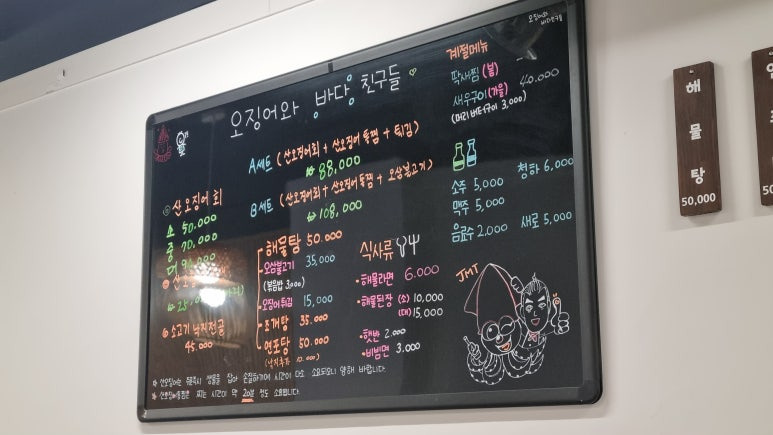 오징어와 바당 친구들
A세트 (산오징어회 + 산오징어통찜 + 튀김)
₩ 88,000
B세트 (산오징어회 + 산오징어통찜 + 오삼불고기)
₩ 108,000
산 오징어 회
소 50,000
중 70,000
대
소고기 낙지전골
45,000
해물탕 50,000
오삼불고기 35,000
(볶음밥 3,000)
오징어 튀김 15,000
조개탕 35,000
연포탕 50,000
식사류
해물라면 6,000
해물된장 (소) 10,000
(대) 15,000
햇반 2,000
비빔면 3,000
계절메뉴
딱새찜 (봄)
새우구이 (가을) 40,000
(머리 버터구이 3,000)
소주 5,000 청하 6,000
맥주 5,000
음료수 2,000 새로 5,000
JMT
산오징어는 주문즉시 생물을 잡아 손질하기에 시간이 다소 소요되오니 양해 바랍니다.
산오징어통찜은 찌는 시간이 약 20분 정도 소요됩니다.
해물탕
50,000